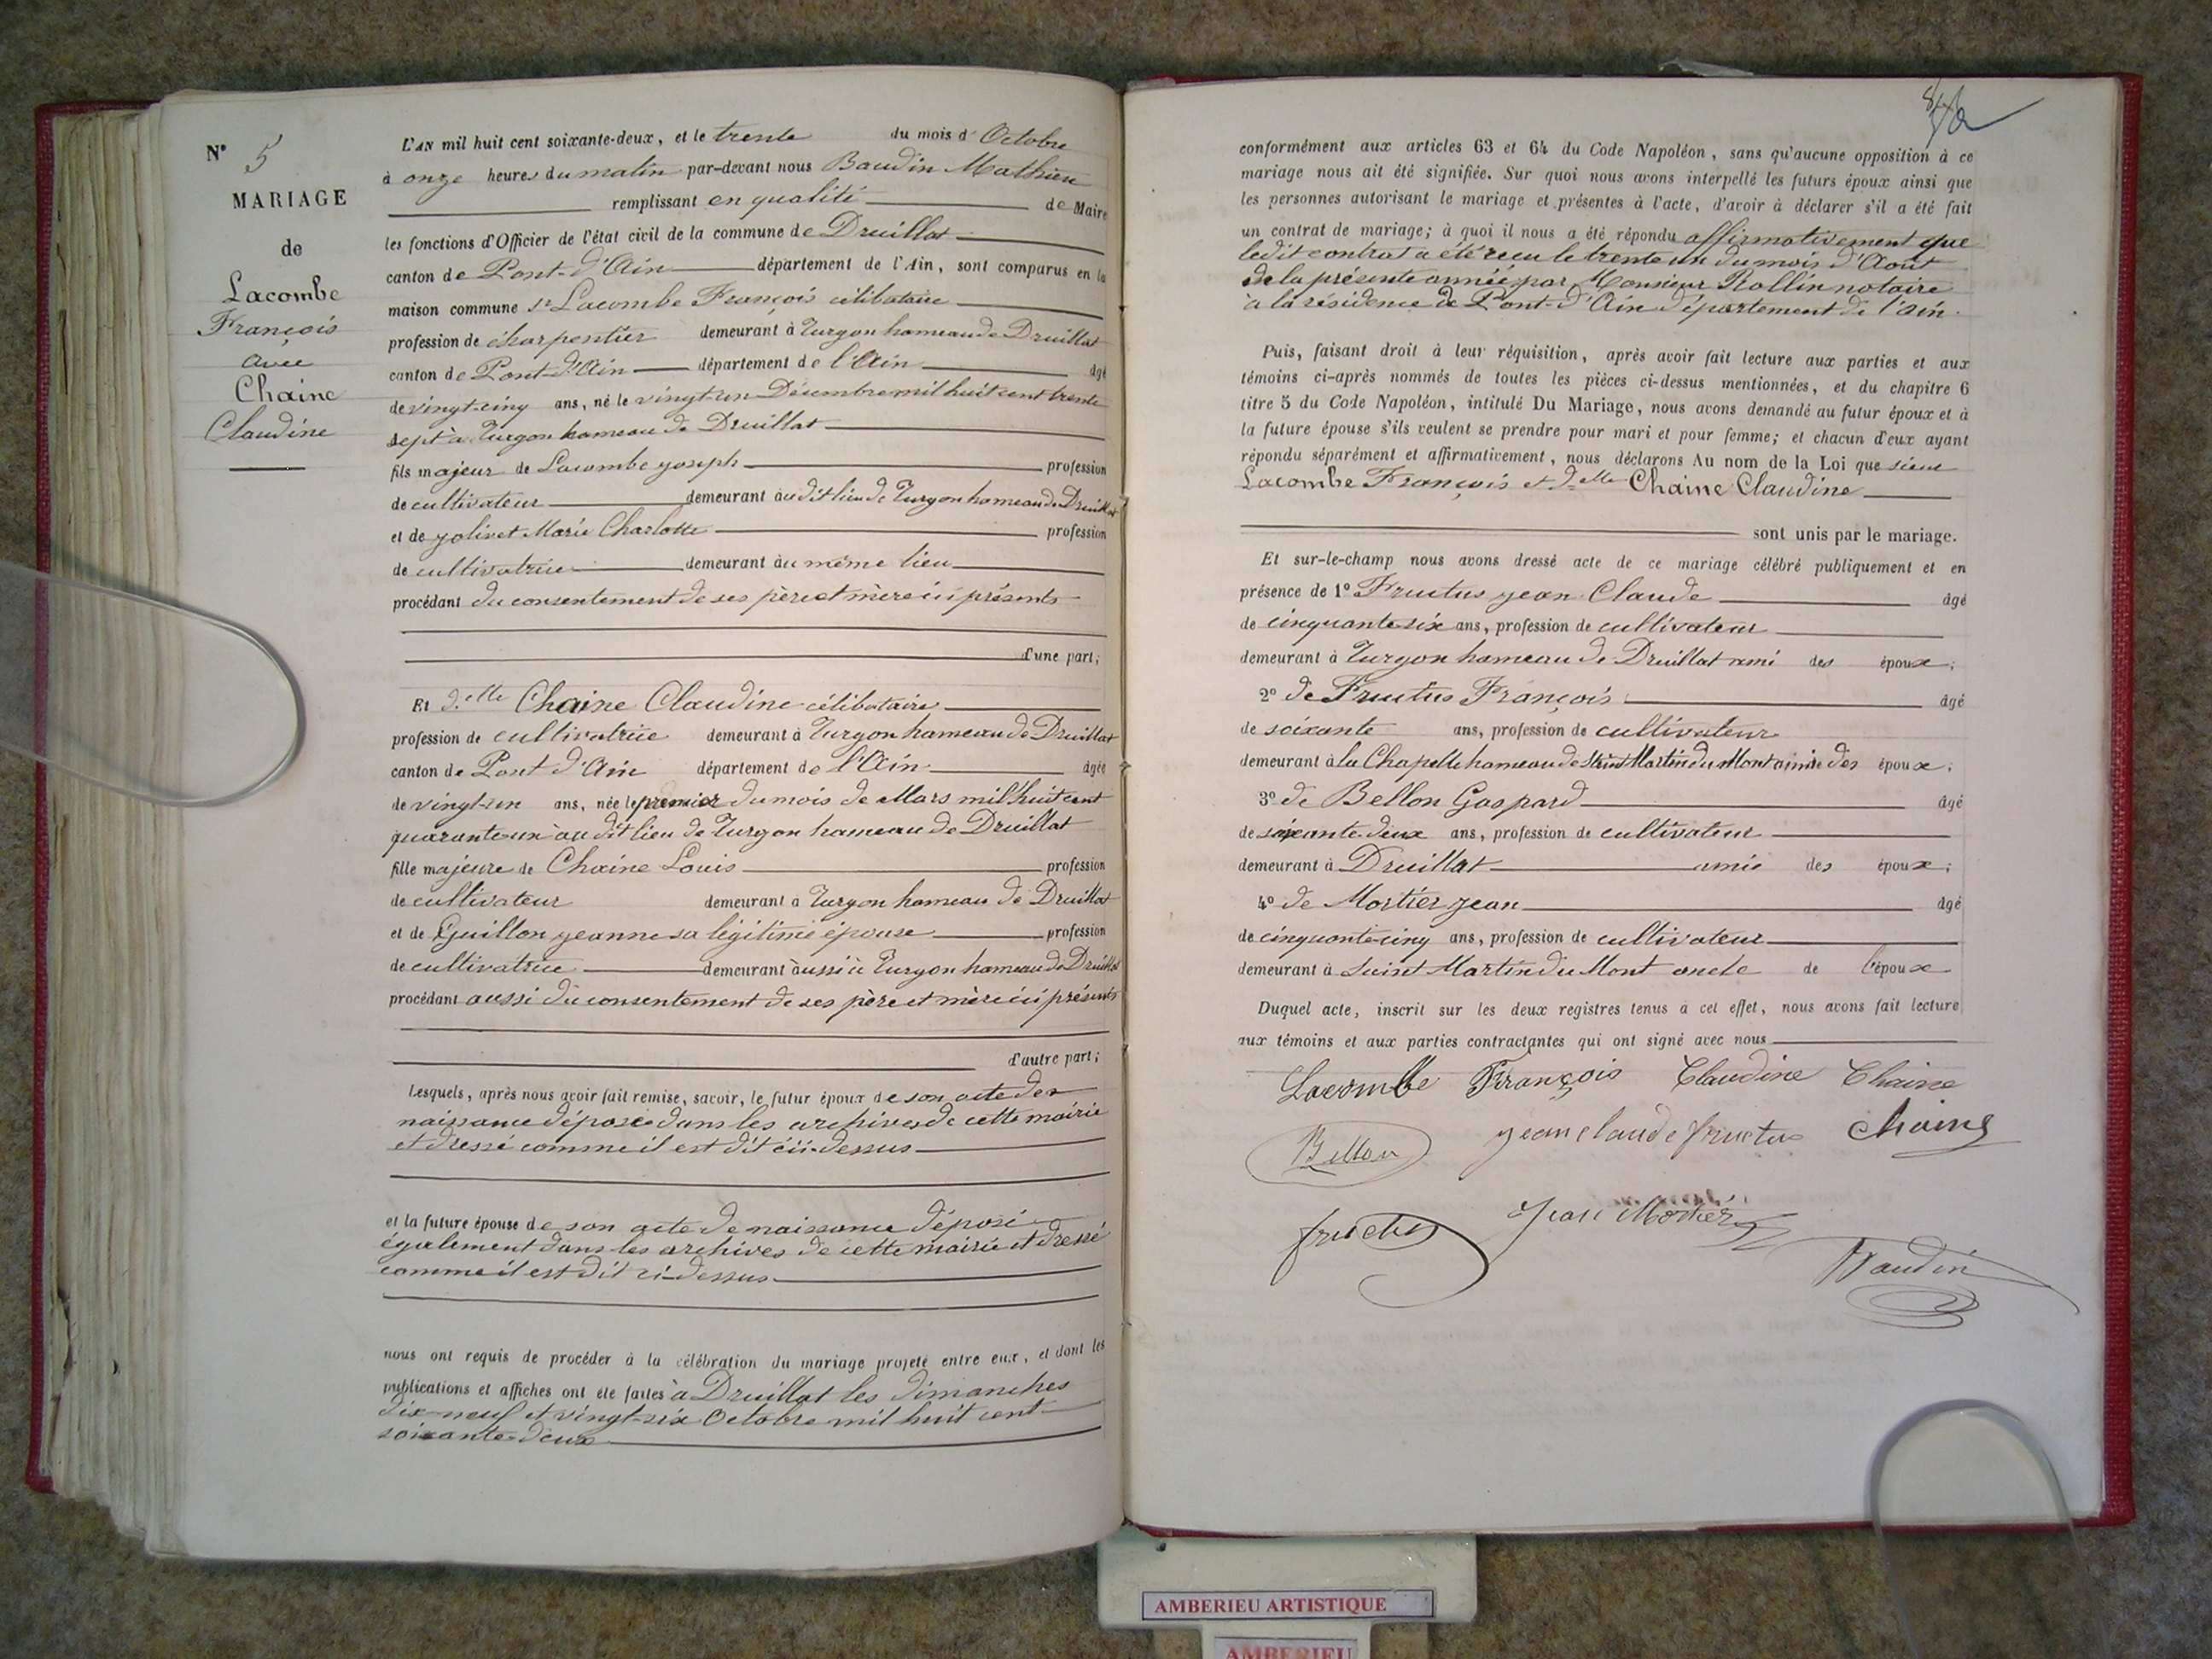 N° 5
MARIAGE
de
Lacombe
François
avec
Chaine
Claudine
L'AN mil huit cent soixante-deux, et le trente du mois d'Octobre
à onze heures du matin par-devant nous Baudin Mathieu
remplissant en qualité de Maire
les fonctions d'Officier de l'état civil de la commune de Druillat
canton de Pont-d'Ain département de l'Ain, sont comparus en la
maison commune sr Lacombe François célibataire
profession de charpentier demeurant à Turgon hameau de Druillat
canton de Pont-d'Ain département de l'Ain âgé
de vingt-cinq ans, né le vingt-un Décembre mil huit cent trente
sept à Turgon hameau de Druillat
fils majeur de Lacombe yoseph profession
de cultivateur demeurant audit lieu de Turgon hameau de Druillat
et de yolivet Marie Charlotte profession
de cultivatrice demeurant au même lieu
procédant du consentement de ses père et mère ici présents
d'une part;
Et d.elle Chaine Claudine célibataire
profession de cultivatrice demeurant à Turgon hameau de Druillat
canton de Pont d'Ain département de l'Ain âgée
de vingt-un ans, née le premier du mois de Mars mil huit cent
quarante un au dit lieu de Turgon hameau de Druillat
fille majeure de Chaine Louis profession
de cultivateur demeurant à Turgon hameau de Druillat
et de Guillon yeanne sa légitime épouse profession
de cultivatrice demeurant aussi à Turgon hameau de Druillat
procédant aussi du consentement de ses père et mère ici présents
d'autre part;
Lesquels, après nous avoir fait remise, savoir, le futur époux de son acte de
naissance déposé dans les archives de cette mairie
et dressé comme il est dit ci-dessus
et la future épouse de son acte de naissance déposé
également dans les archives de cette mairie et dressé
comme il est dit ci-dessus
nous ont requis de procéder à la célébration du mariage projeté entre eux, et dont les
publications et affiches ont été faites à Druillat les dimanches
dix-neuf et vingt-six Octobre mil huit cent
soixante-deux
conformément aux articles 63 et 64 du Code Napoléon, sans qu'aucune opposition à ce
mariage nous ait été signifiée. Sur quoi nous avons interpellé les futurs époux ainsi que
les personnes autorisant le mariage et présentes à l'acte, d'avoir à déclarer s'il a été fait
un contrat de mariage; à quoi il nous a été répondu affirmativement que
ledit contrat a été reçu le trente un du mois d'Aout
de la présente année par Monsieur Rollin notaire
à la résidence de Pont-d'Ain département de l'ain.
Puis, faisant droit à leur réquisition, après avoir fait lecture aux parties et aux
témoins ci-après nommés de toutes les pièces ci-dessus mentionnées, et du chapitre 6
titre 5 du Code Napoléon, intitulé Du Mariage, nous avons demandé au futur époux et à
la future épouse s'ils veulent se prendre pour mari et pour femme; et chacun d'eux ayant
répondu séparément et affirmativement, nous déclarons Au nom de la Loi que sieur
Lacombe François et d.elle Chaine Claudine
sont unis par le mariage.
Et sur-le-champ nous avons dressé acte de ce mariage célébré publiquement et en
présence de 1° Fructus yean Claude âgé
de cinquante six ans, profession de cultivateur
demeurant à Turgon hameau de Druillat ami des époux;
2° de Fructus François âgé
de soixante ans, profession de cultivateur
demeurant à la Chapelle hameau de Saint Martin du Mont amie des époux;
3° de Bellon Gaspard âgé
de soixante-deux ans, profession de cultivateur
demeurant à Druillat amie des époux;
4° de Mortier yean âgé
de cinquante-cinq ans, profession de cultivateur
demeurant à Saint Martin du Mont oncle de l'époux
Duquel acte, inscrit sur les deux registres tenus à cet effet, nous avons fait lecture
aux témoins et aux parties contractantes qui ont signé avec nous
Lacombe François Claudine Chaine
Bellon yean claude fructus chaine
fructus Jean Mortier
Baudin
AMBERIEU ARTISTIQUE
AMBERIEU